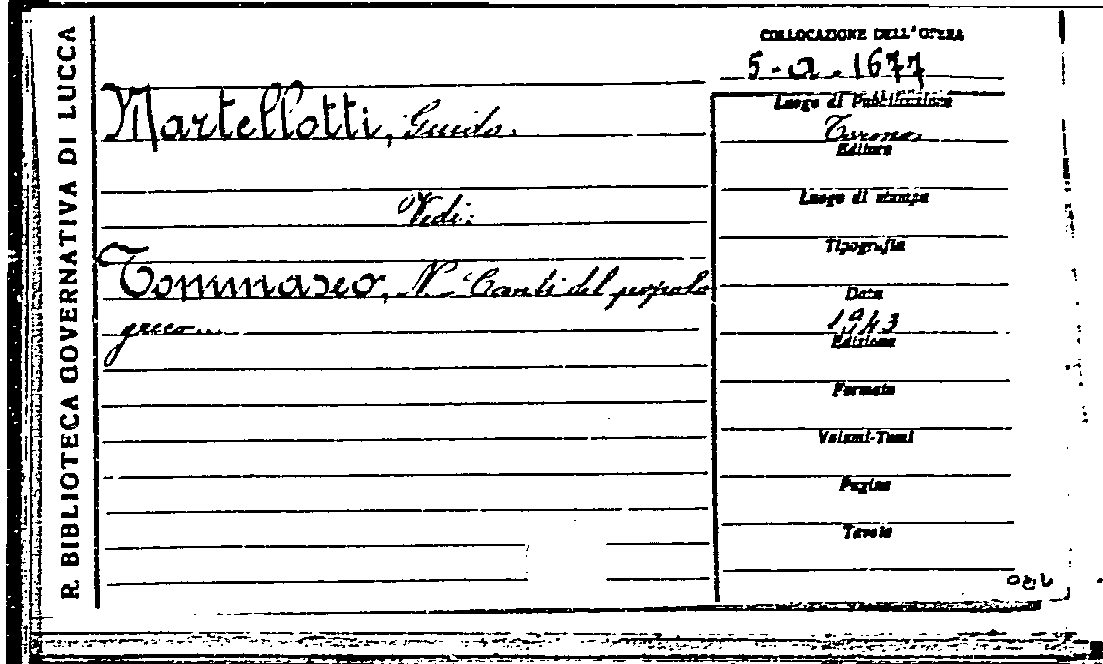 R. BIBLIOTECA GOVERNATIVA DI LUCCA
COLLOCAZIONE DELL'OPERA
5-a-1677
Martellotti, Guido.
Vedi:
Tommaseo, N. Canti del popolo
greco...
Luogo di Pubblicazione
Editore
Luogo di stampa
Tipografia
Data
1943
Edizione
Formato
Volumi-Tomi
Pagine
Tavole